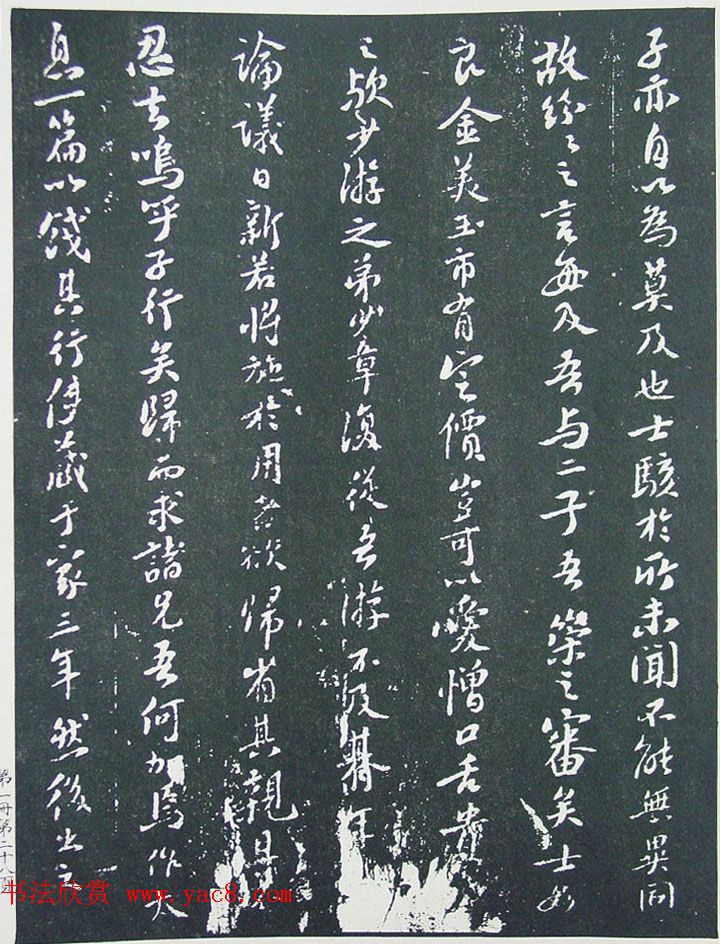 子亦自以為莫及也士駭於所未聞不能無異同
故紛々之言每及吾与二子吾策之審矣士如
良金美玉市有定價豈可以愛憎口舌貴
之歟少游之弟少章復從吾游不及朞年
論議日新若將施於用者欲歸省其親且
忍去嗚乎子行矣歸而求諸兄吾何加焉作太
息一篇以餞其行使藏于家三年然後出之
第一冊第二十八
书法欣赏 www.yac8.com